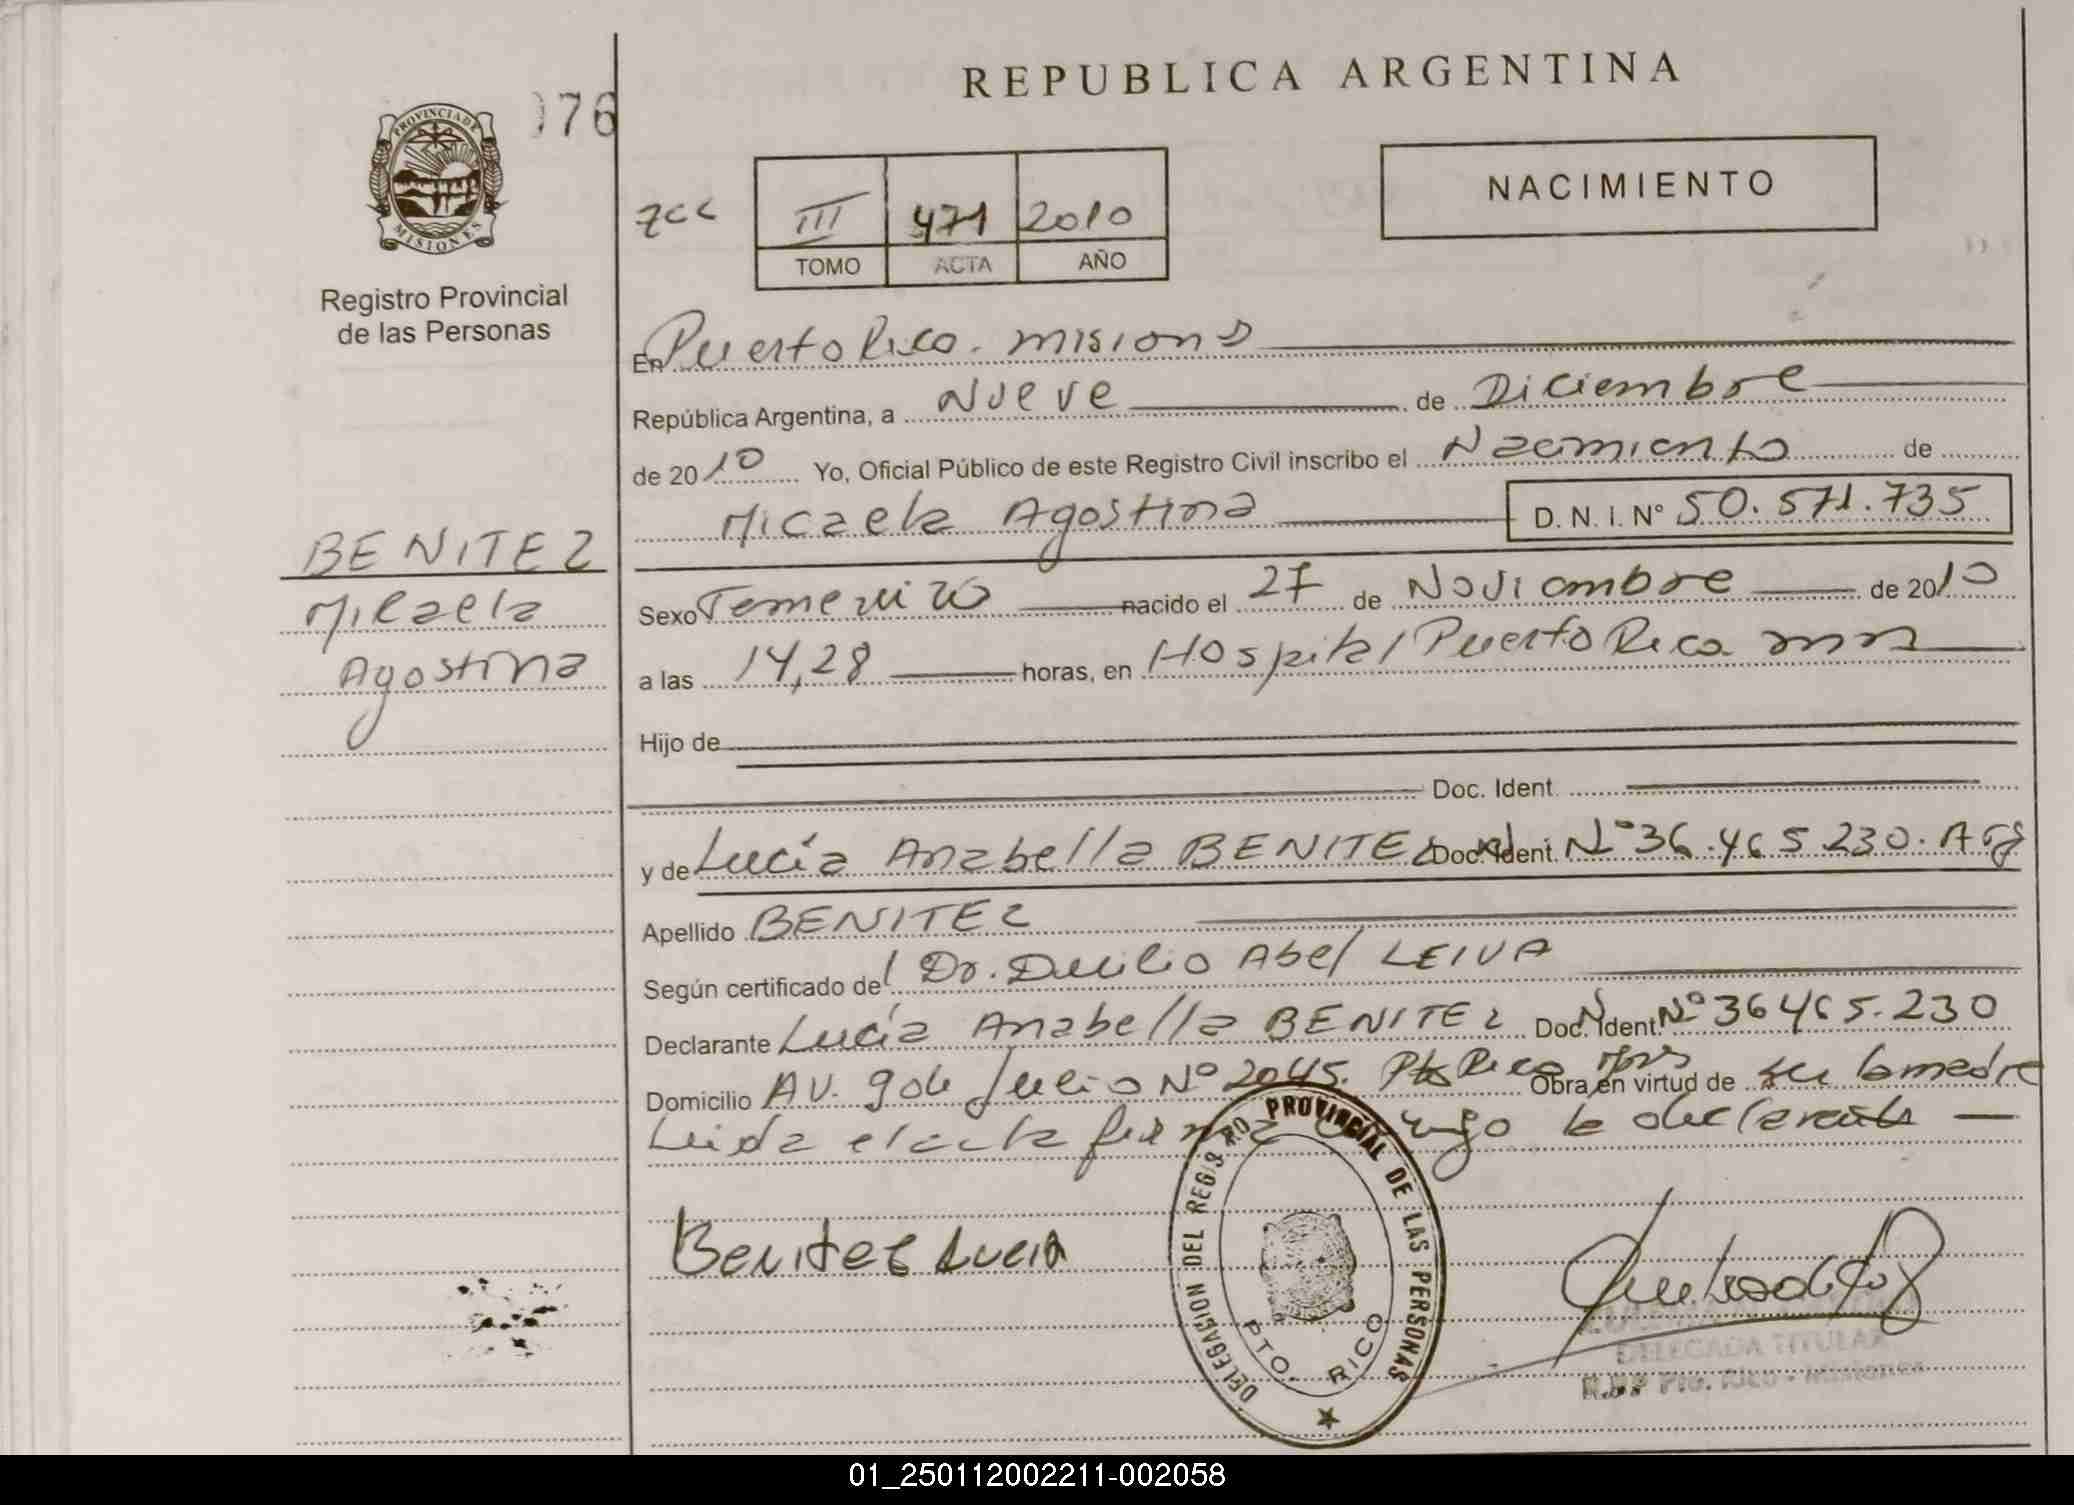 REPUBLICA ARGENTINA
PROVINCIA DE
MISIONES
076
Registro Provincial
de las Personas
III 471 2010
TOMO ACTA AÑO
NACIMIENTO
En Puerto Rico. Misiones
República Argentina, a Nueve de Diciembre
de 2010 Yo, Oficial Público de este Registro Civil inscribo el Nacimiento de
Micaela Agostina D. N. I. N° 50.571.735
BENITEZ
Micaela
Agostina
Sexo Femenino nacido el 27 de Noviembre de 2010
a las 14,28 horas, en Hospital Puerto Rico mns
Hijo de
Doc. Ident.
y de Lucía Anabella BENITEZ Doc. Ident. N° 36.465.230. Arg
Apellido BENITEZ
Según certificado del Dr. Duilio Abel LEIVA
Declarante Lucía Anabella BENITEZ Doc. Ident. N° 36465.230
Domicilio AV. 9 de Julio N° 2045. Pto Rico Mns Obra en virtud de ser la madre
Leida el acta firma la declarante
Benitez Lucia
DELEGACION DEL REGISTRO PROVINCIAL DE LAS PERSONAS
PTO. RICO
DELEGADA TITULAR
Pto. Rico - Misiones
01_250112002211-002058